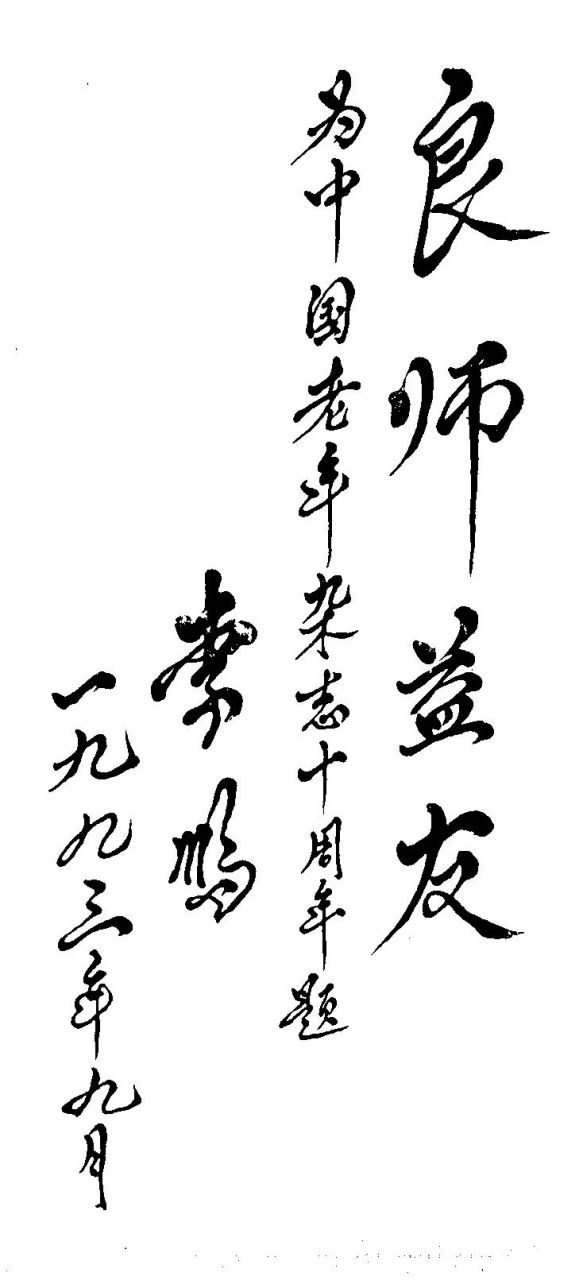 良师益友
为中国老年杂志十周年题
李鹏
一九九三年九月